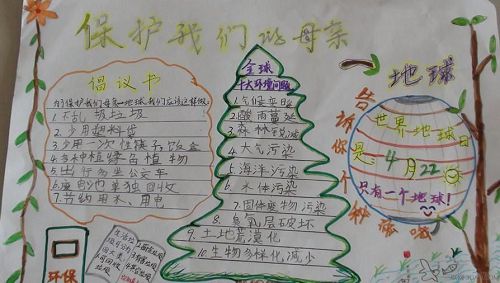 保护我们的母亲
地球
倡议书
为了保护我们母亲—地球,我们应该这样做:
1.不乱圾垃圾
2.少用塑料袋
3.少用一次性筷子饭盒
4.多种植绿色植物
5.出行多坐公交车
6.废电池单独回收
7.节约用水、用电
环保
全球
十大环境问题
1.气候变暖
2.酸雨蔓延
3.森林锐减
4.大气污染
5.海洋污染
6.水体污染
7.固体废物污染
8.臭氧层破坏
9.土地荒漠化
10.生物多样化减少
告诉你是个
世界地球日
4月22
只有一个地球!